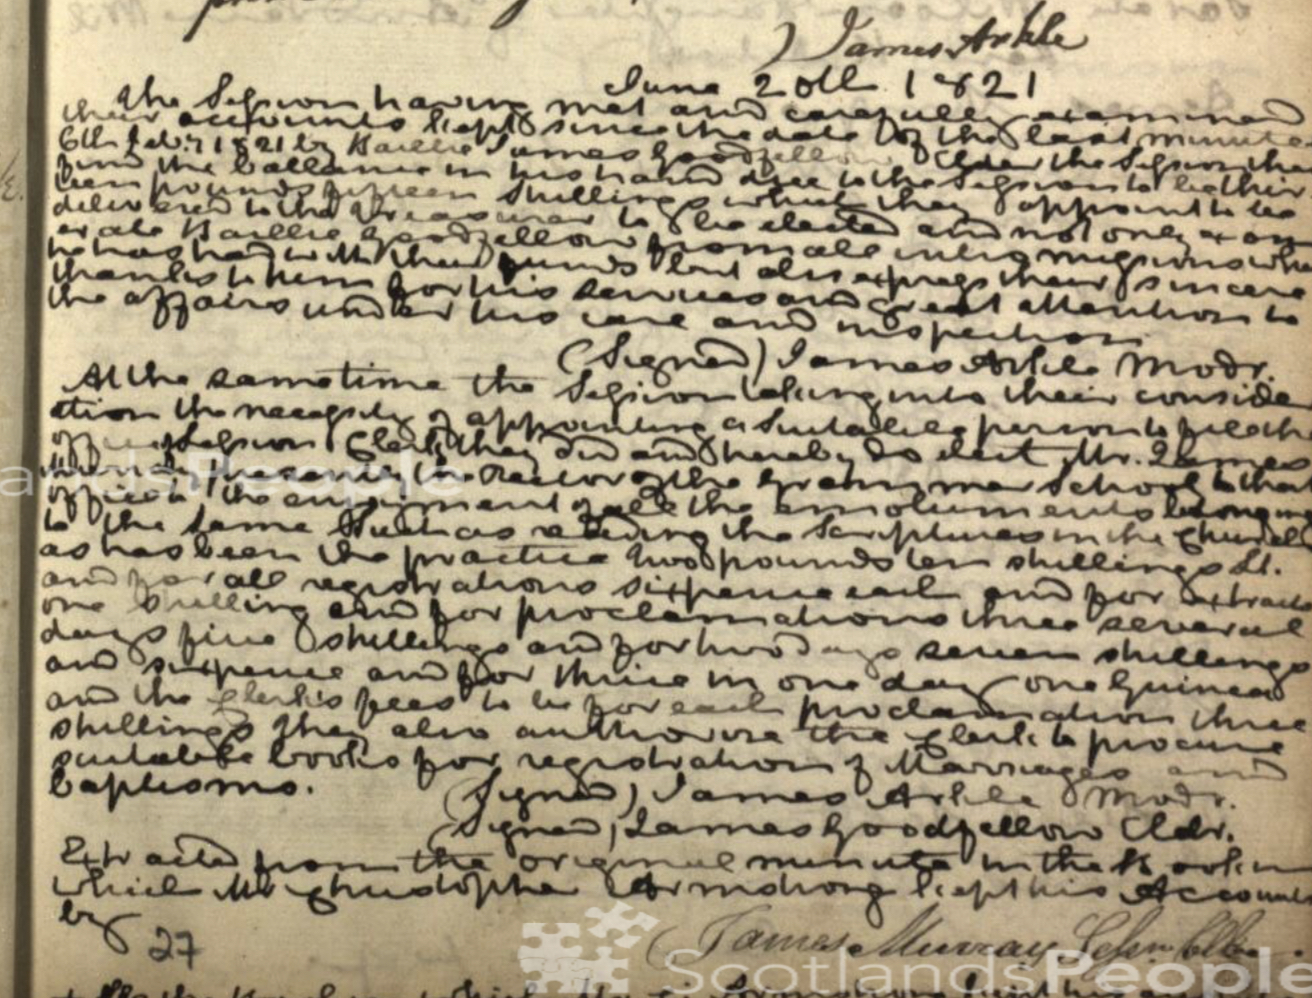 ) James Arkle
June 20th 1821
The Session having met and carefully examined
their accounts kept since the date of the last minute
6th Feby 1821 by Baillie James Goodfellow Elder the Session then
find the ballance in his hand due to the Session to be thir
teen pounds fifteen shillings which they appoint to be
delivered to the Treasurer to be elected and not only exon
erate Baillie Goodfellow from all intromissions which
he has had with their funds but also express their sincere
thanks to him for his services and great attention to
the affairs under his care and inspection
(Signed) James Arkle Modr.
At the sametime the Session taking into their consider
ation the necessity of appointing a Suitable person to fill the
office of Session Clerk they did and hereby do elect Mr. James
Murray Rector of the Grammar School to that
office in the enjoyment of all the emoluments belonging
to the same Such as reading the Scriptures in the Church
as has been the practice two pounds ten shillings St.
and for all registrations sixpence each and for extracts
one shilling and for proclamations three several
days five shillings and for two days seven shillings
and sixpence and for thrice in one day one Guinea
and the Clerk's fees to be for each proclamation three
shillings they also authorise the Clerk to procure
suitable books for registration of Marriages and
baptisms.
(Signed) James Arkle Modr.
(Signed) James Goodfellow Eldr.
Extracted from the original minute in the Book in
which Mr Christopher Armstrong kept his Accounts
by
27
(James Murray Sessn Clk.
ScotlandsPeople